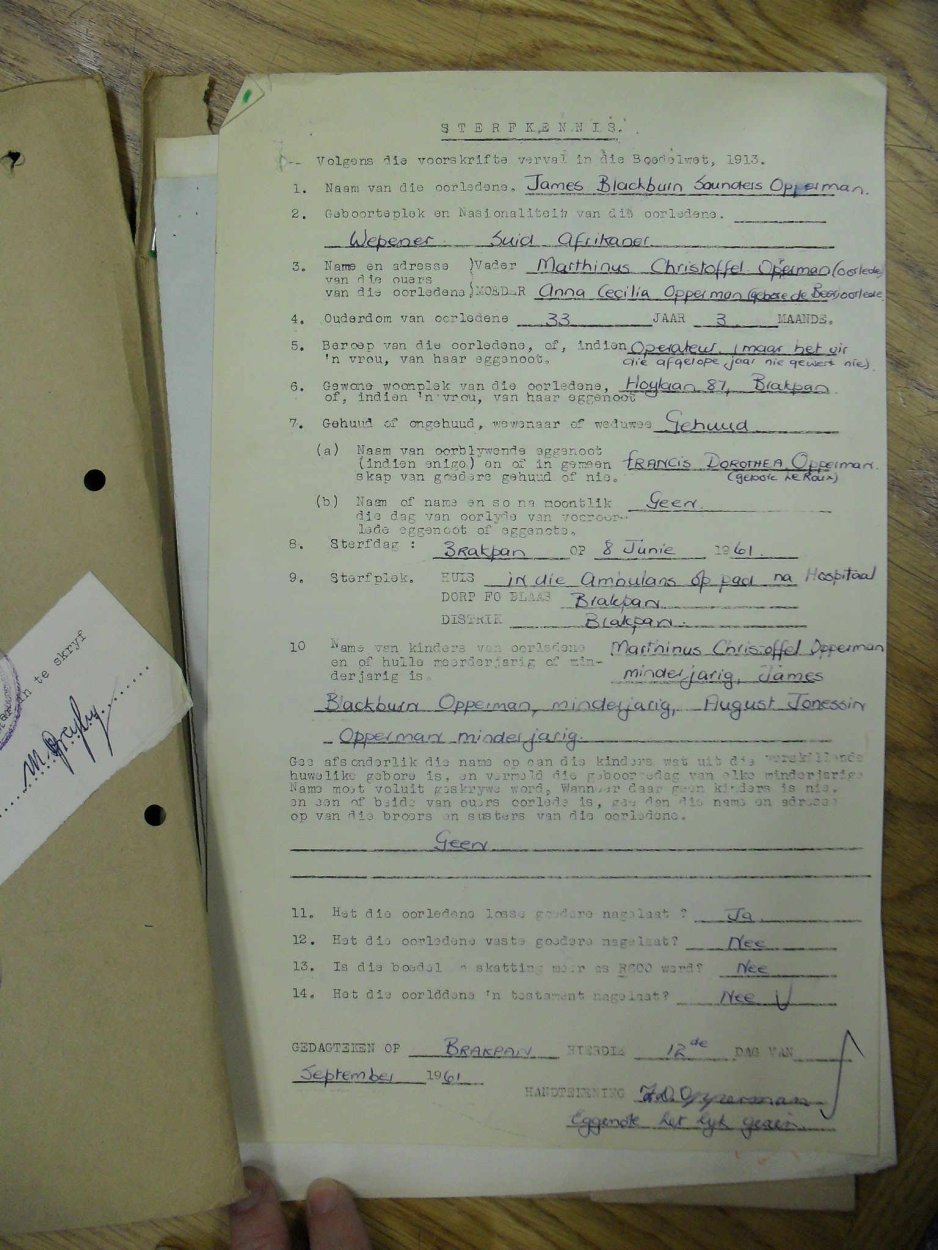 STERFKENNIS.
Volgens die voorskrifte vervat in die Boedelwet, 1913.
1. Naam van die oorledene. James Blackburn Saunders Opperman.
2. Geboorteplek en Nasionaliteit van die oorledene.
Wepener Suid Afrikaner
3. Name en adresse )Vader Marthinus Christoffel Opperman (oorlede)
van die ouers
van die oorledene)MOEDER Anna Cecilia Opperman (gebore de Beer) oorlede
4. Ouderdom van oorledene 33 JAAR 3 MAANDE.
5. Beroep van die oorledene, of, indien Operateur (maar het vir
'n vrou, van haar eggenoot. die afgelope jaar nie gewerk nie).
6. Gewone woonplek van die oorledene, Hoylaan 87, Brakpan
of, indien 'n vrou, van haar eggenoot
7. Gehuud of ongehuud, wewenaar of weduwee Gehuud
(a) Naam van oorblywende eggenoot
(indien enige) en of in gemeen FRANCIS DOROTHEA Opperman.
skap van goedere gehuud of nie. (gebore Le Roux)
(b) Naam of name en so na moontlik Geen
die dag van oorlyde van vooroor-
lede eggenoot of eggenote.
8. Sterfdag : Brakpan OP 8 Junie 1961.
9. Sterfplek. HUIS in die Ambulans op pad na Hospitaal
DORP FO PLAAS Brakpan
DISTRIK Brakpan.
10 Name van kinders van oorledene Marthinus Christoffel Opperman
en of hulle meerderjarig of min- minderjarig, James
derjarig is.
Blackburn Opperman, minderjarig, August
Opperman minderjarig.
Gee afsonderlik die name op van die kinders wat uit die verskillende
huwelike gebore is, en vermeld die geboortedag van elke minderjarige
Name moet voluit geskrywe word, Wanneer daar geen kinders is nie,
en een of beide van ouers oorlede is, gee dan die name en adresse
op van die broers en susters van die oorledene.
Geen
11. Het die oorledene losse goedere nagelaat ? Ja
12. Het die oorledene vaste goedere nagelaat? Nee
13. Is die boedel n skatting meer as R600 werd? Nee
14. Het die oorlddene 'n testament nagelaat? Nee
GEDAGTEKEN OP BRAKPAN HIERDIE 12de DAG VAN
September 1961
HANDTEKENING F.D. Opperman
Eggenote het lyk gesien.
te skryf